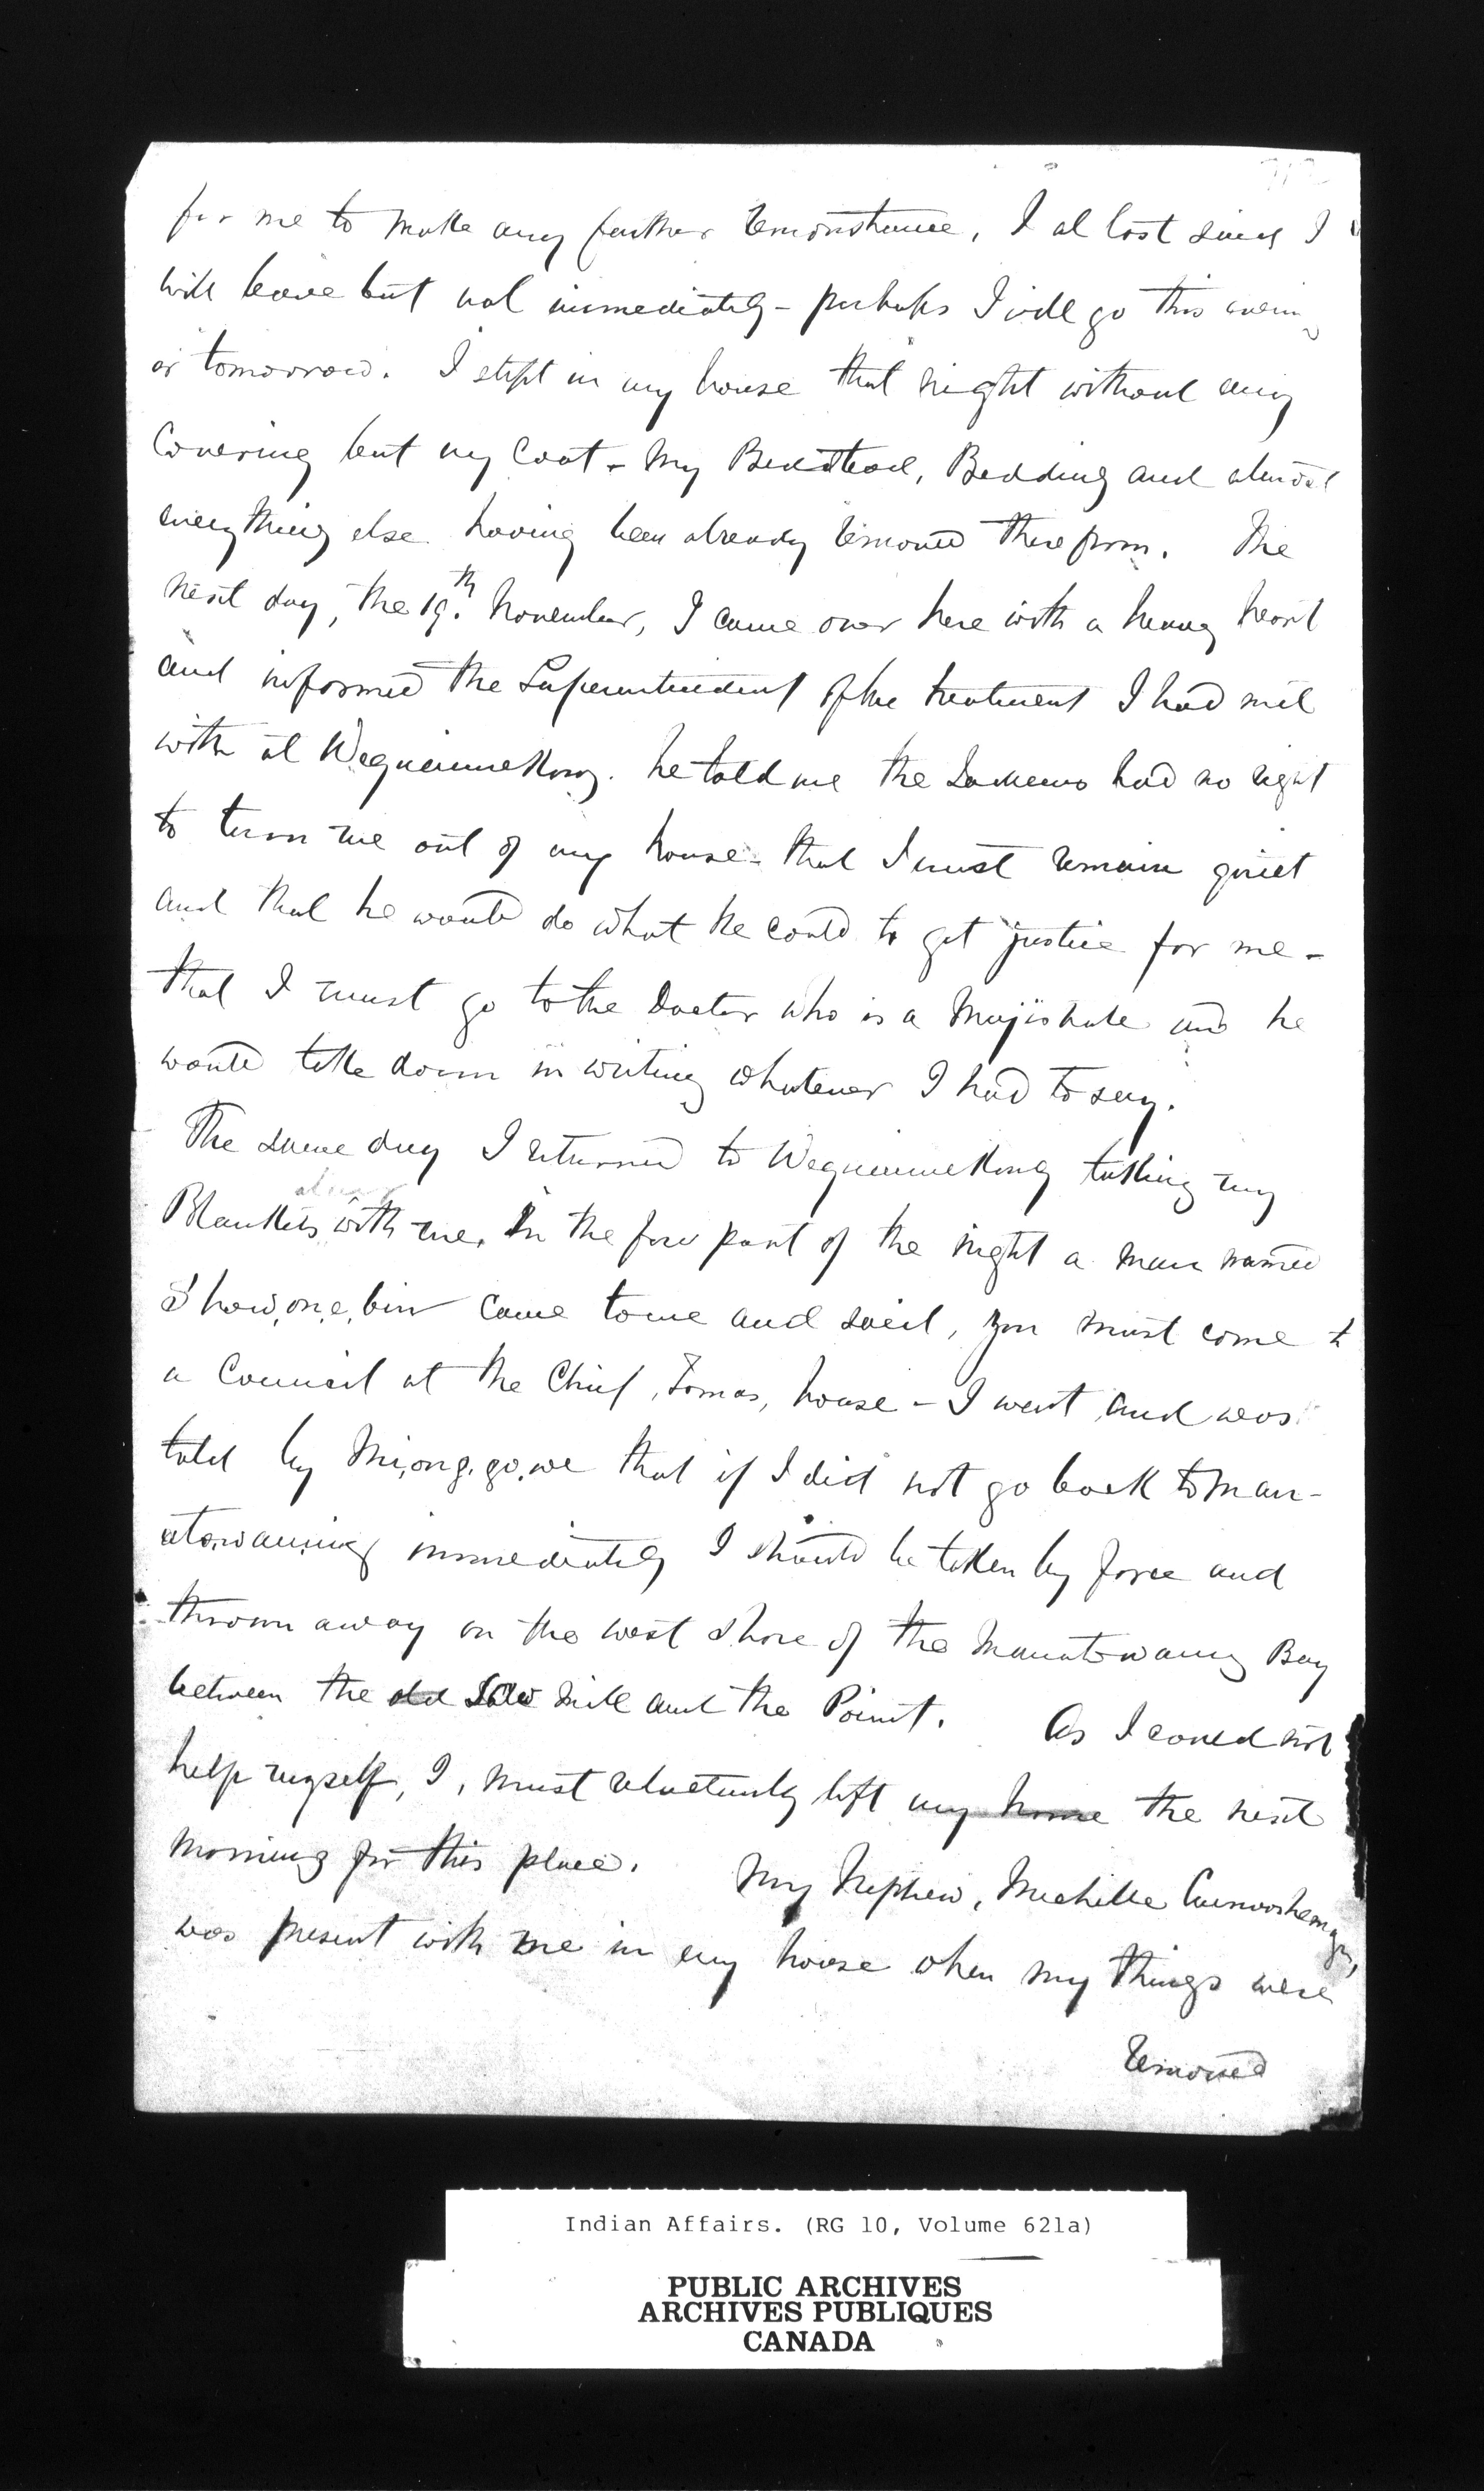 for me to make any further remonstrance, I at last said I
will leave but not immediately - perhaps I will go this evening
or tomorrow. I slept in my house that night without any
Covering but my Coat - My Bedstead, Bedding and almost
everything else having been already removed therefrom. The
next day, the 19th. November, I came over here with a heavy heart
and informed the Superintendent of the treatment I had met
with at Wequimekong. he told me the had no right
to turn me out of my house - that I must remain quiet
and that he would do what he could to get justice for me -
that I must go to the Doctor who is a Majistrate and he
would take down in writing whatever I had to say.
The same day I returned to Wequimekong taking my
Blankets along with me. In the fore part of the night a man named
Show,on,e,bin came to me and said, you must come to
a Council at the Chief, Tomas, house - I went and was
told by Mi,ong,go,we that if I did not go back to Man-
atowauning immediately I should be taken by force and
thrown away on the west shore of the Manatowaung Bay
between the old Saw Mill and the Point. As I could not
help myself, I, most reluctantly left my home the next
morning for this place. My Nephew, Michelle
was present with me in my house when my things were
removed
Indian Affairs. (RG 10, Volume 621a)
PUBLIC ARCHIVES
ARCHIVES PUBLIQUES
CANADA